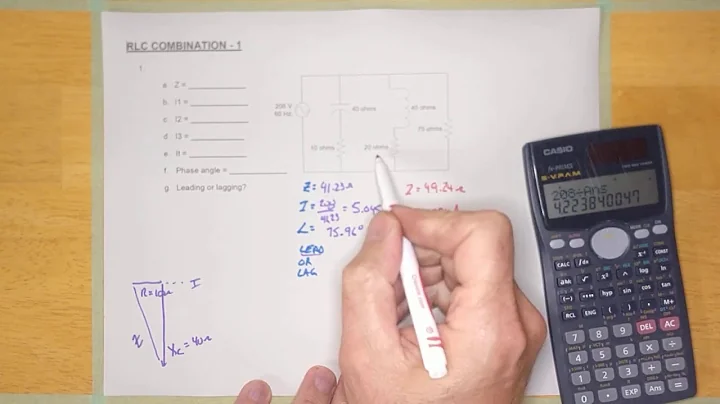 RLC COMBINATION - 1
1.
a. Z = ________
b. I1 = ________
c. I2 = ________
d. I3 = ________
e. It = ________
f. Phase angle = ________
g. Leading or lagging?
208 V
60 Hz
40 ohms
10 ohms
20 ohms
75 ohms
Z = 41.23Ω
I = 208/41.23 = 5.045
∠ = 75.96°
LEAD
OR
LAG
Z = 49.24Ω
R = 10Ω
I
Z
Xc = 40Ω
CASIO
S-V.P.A.M.
208÷Ans
4.223840047
CALC
x²
log
ln
(-)
hyp
sin
cos
tan
RCL
ENG
(
)
,
M+
7
8
9
DEL
AC
4
5
6
×
÷
1
2
3
+
-
0
.
EXP
Ans
=